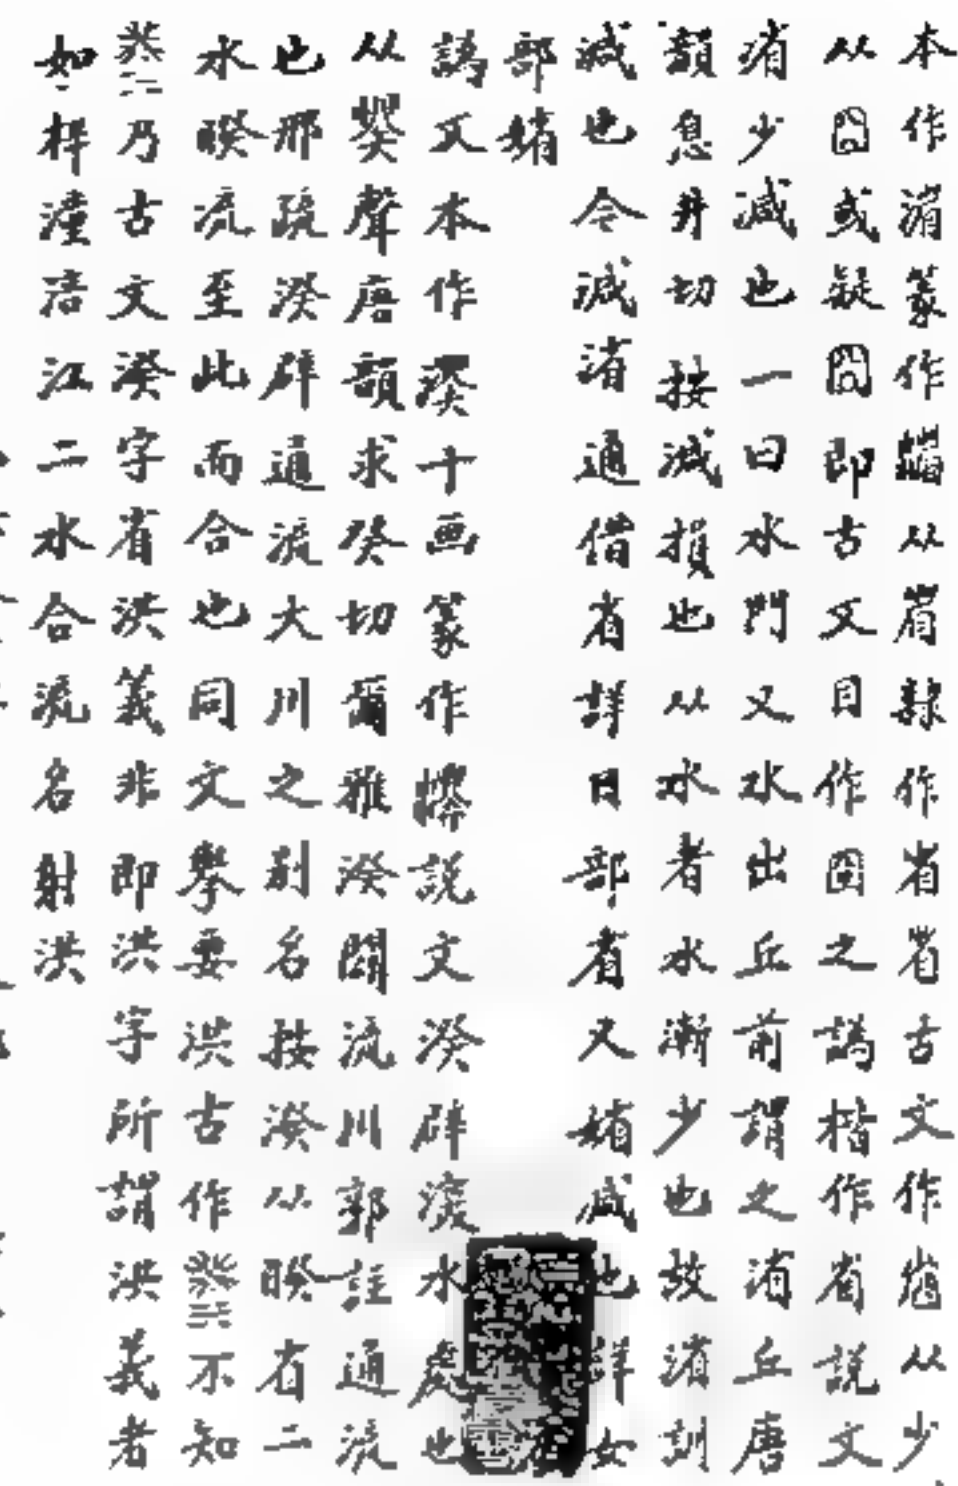 本作渻篆作 从眉隸作省 古文作 从少
从囧或疑囧即古文目作囧之譌楷作省說文
渻少減也一曰水門又水出丘前謂之渻丘唐
韻息井切 按減損也从水者水漸少也故渻訓
減也今減渻通借省詳目部省又媘減也詳女
部媘
譌文本作湀十画篆作 說文湀辟 水處也
从 聲唐韻求癸切爾雅湀闢流川郭註通流
也邢疏湀辟通流大川之別名按湀从睽省二
水睽流至此而合也同文舉要洪古作 不知
 乃古文湀字省洪義非即洪字所謂洪義者
如梓潼涪江二水合流名射洪